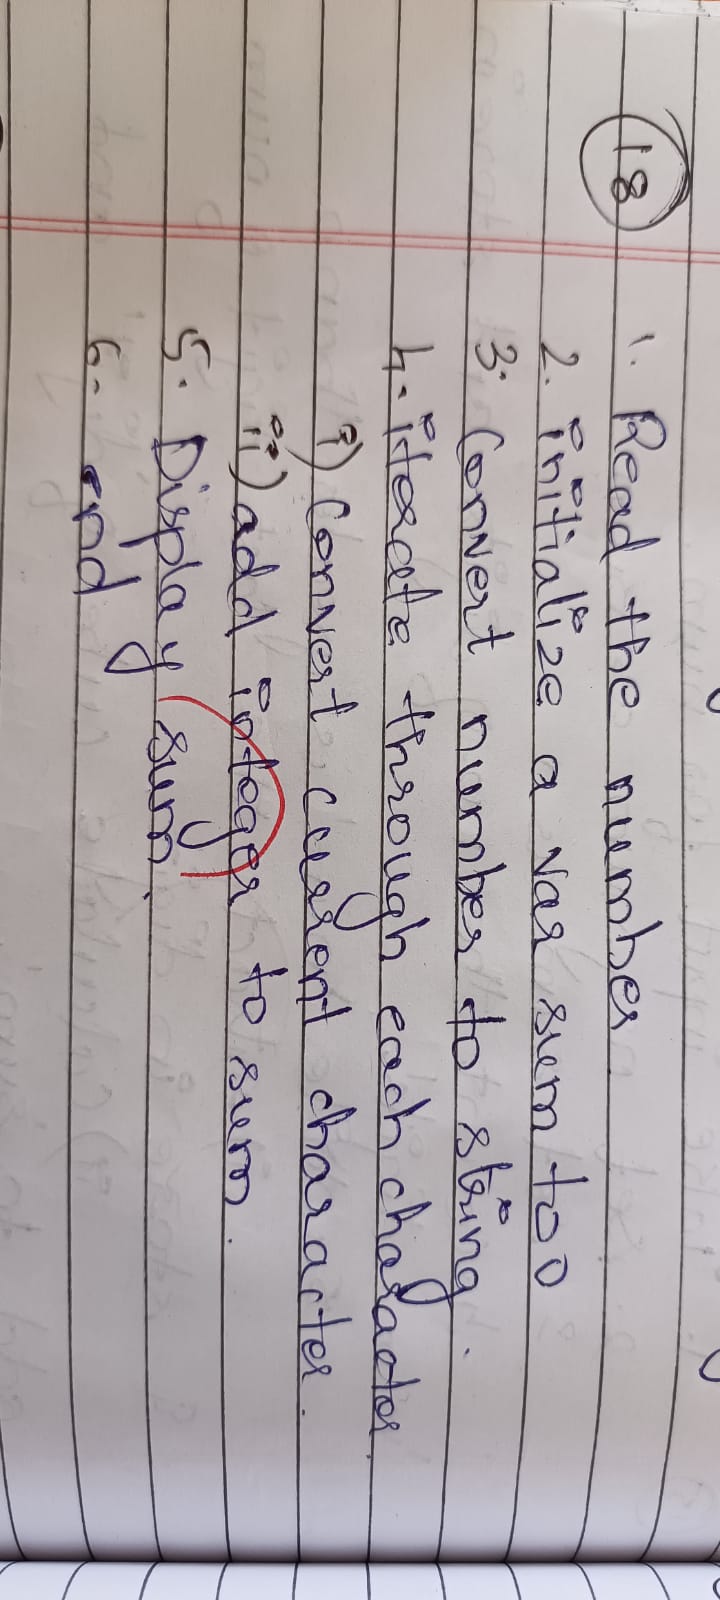 18
1. Read the number
2. initialize a var sum to 0
3. Convert number to string.
4. iterate through each character.
i) Convert current character.
ii) add integer to sum.
5. Display sum.
6. end